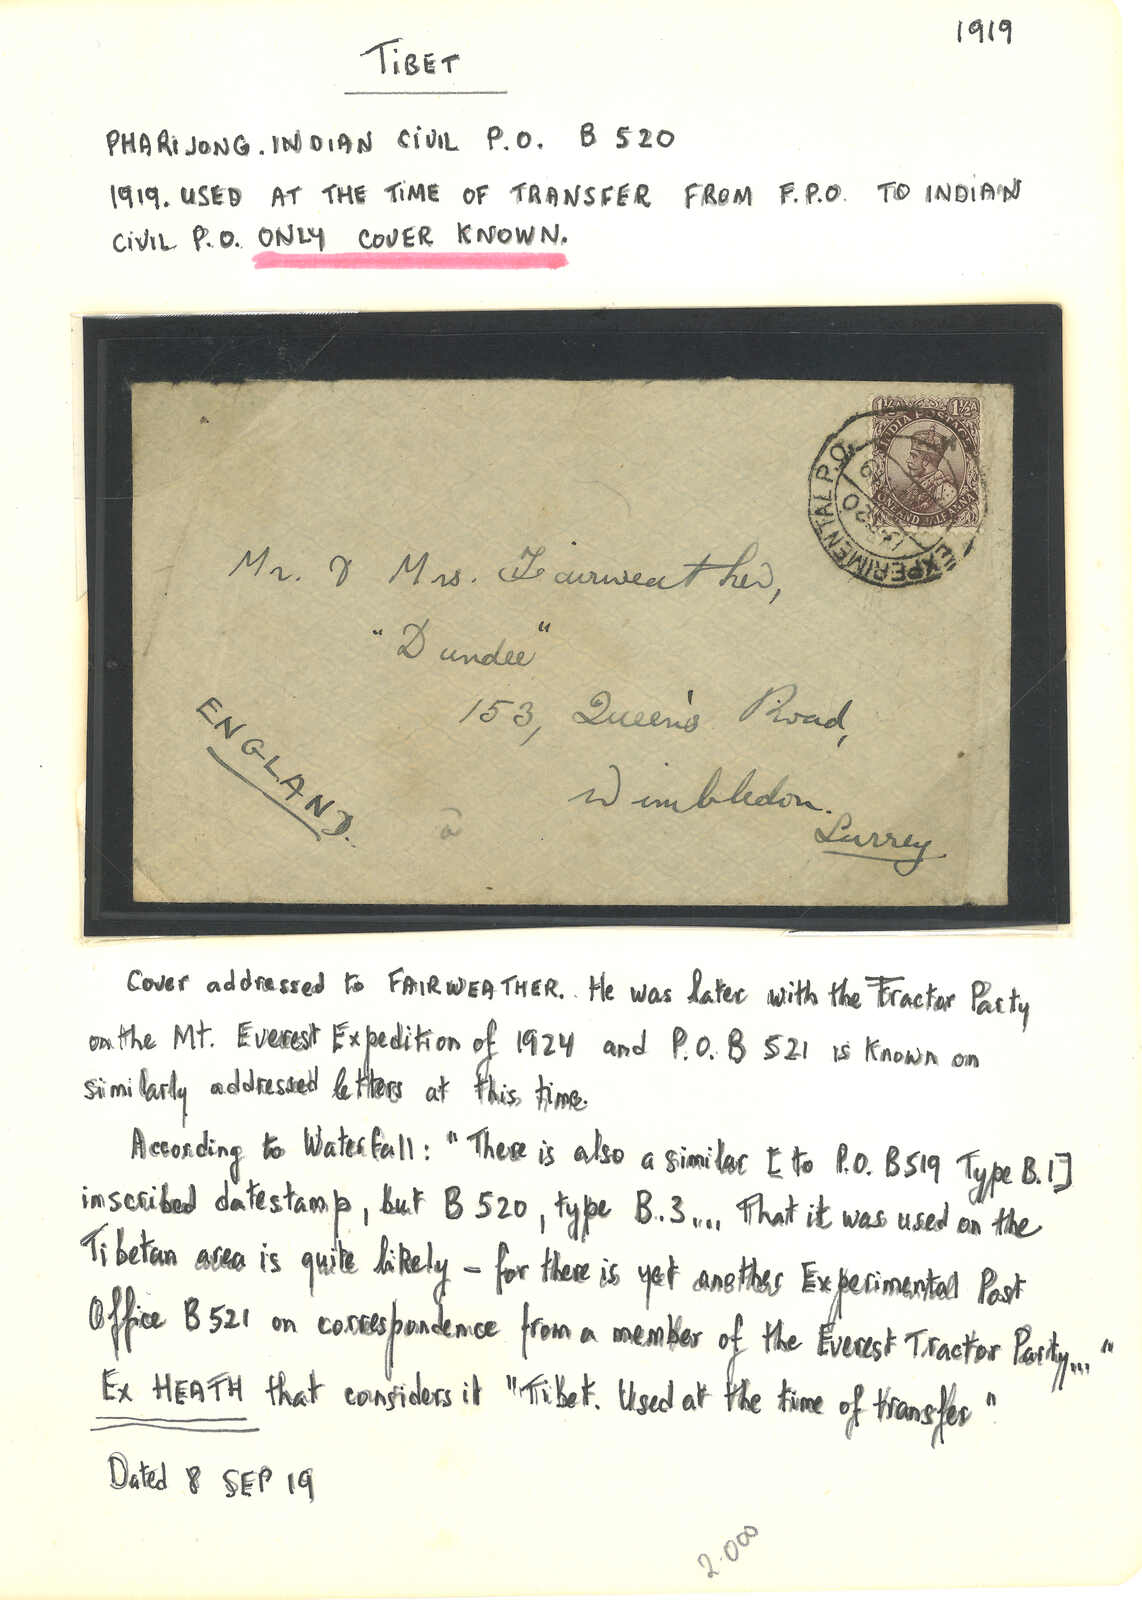 1919
TIBET
PHARIJONG. INDIAN CIVIL P.O. B 520
1919. USED AT THE TIME OF TRANSFER FROM F.P.O. TO INDIAN
CIVIL P.O. ONLY COVER KNOWN.
1½A 1½A
INDIA POSTAGE
ONE AND HALF ANNA
EXPERIMENTAL P.O.
Mr. & Mrs. Fairweather,
"Dundee"
153, Queen's Road,
Wimbledon.
Surrey
ENGLAND.
Cover addressed to FAIRWEATHER. He was later with the Tractor Party
on the Mt. Everest Expedition of 1924 and P.O. B 521 is known on
similarly addressed letters at this time.
According to Waterfall: "There is also a similar [to P.O. B519 Type B.1]
inscribed datestamp, but B 520, type B.3.... That it was used on the
Tibetan area is quite likely – for there is yet another Experimental Post
Office B 521 on correspondence from a member of the Everest Tractor Party..."
Ex HEATH that considers it "Tibet. Used at the time of transfer"
Dated 8 SEP 19
2.000